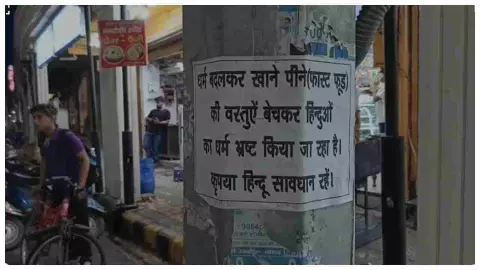 धर्म बदलकर खाने पीने(फास्ट फूड)
की वस्तुऐं बेचकर हिन्दुओं
का धर्म भ्रष्ट किया जा रहा है।
कृपया हिन्दू सावधान रहें।